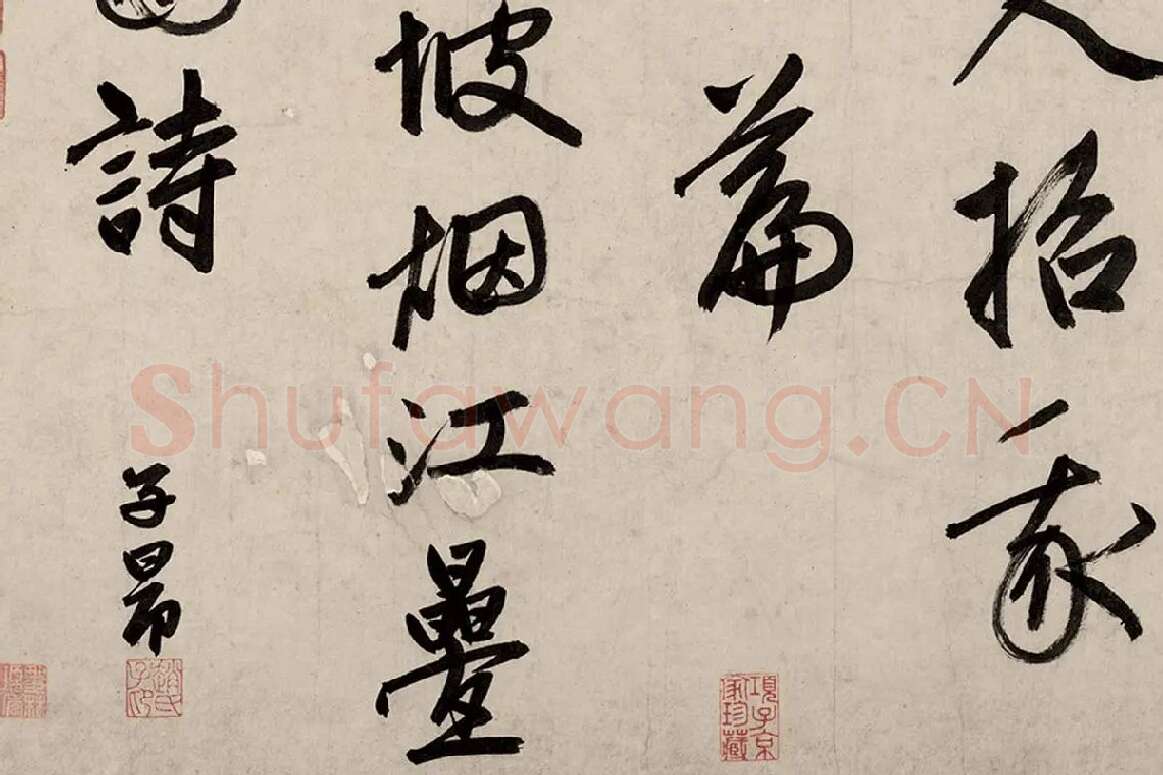 人招我
篇
坡烟江疊
詩
子昂
項子京家珍藏
趙氏子昂
Shufawang.CN